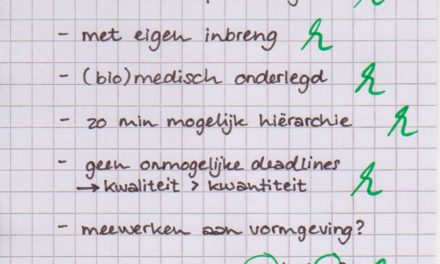 - met eigen inbreng
- (bio)medisch onderlegd
- zo min mogelijk hiërarchie
- geen onmogelijke deadlines
→ kwaliteit > kwantiteit
- meewerken aan vormgeving?